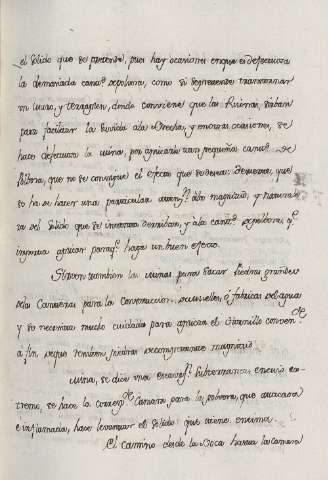 el solido que se pretende, pues hay ocasiones en que es defectuosa
la demasiada cant.d de polvora, como si se pretende transtornar
un Muro, y terraplen, donde conviene que las Ruinas, sirvan
para facilitar la suvida a la Brecha, y en otras ocasiones, se
hace defectuosa la mina, por aplicarle tan pequeña cant.d de
Polvora, que no se consigue el efecto que se desea: de manera, que
se ha de hacer una particular aten.n a la magnitud, y natural
za del Solido que se intenta derribar, y a la cant.d de polvora, q.e
importa aplicar para q.e haga un buen efecto.
Sirven tambien las minas para sacar Piedras grandes
de las Canteras para la construccion de muelles, ò fabricas del agua
y se necesita mucho cuidado para aplicar el Hornillo conven.te
a fin de que resulten piedras de competente magnitud.
Mina, se dice una escav.n subterranea, en cuio es-
tremo, se hace la corresp.te Camara para la polvora, que atacada
e inflamada, hace levantar el Solido que tiene encima.
El camino desde la Boca hasta la Camara